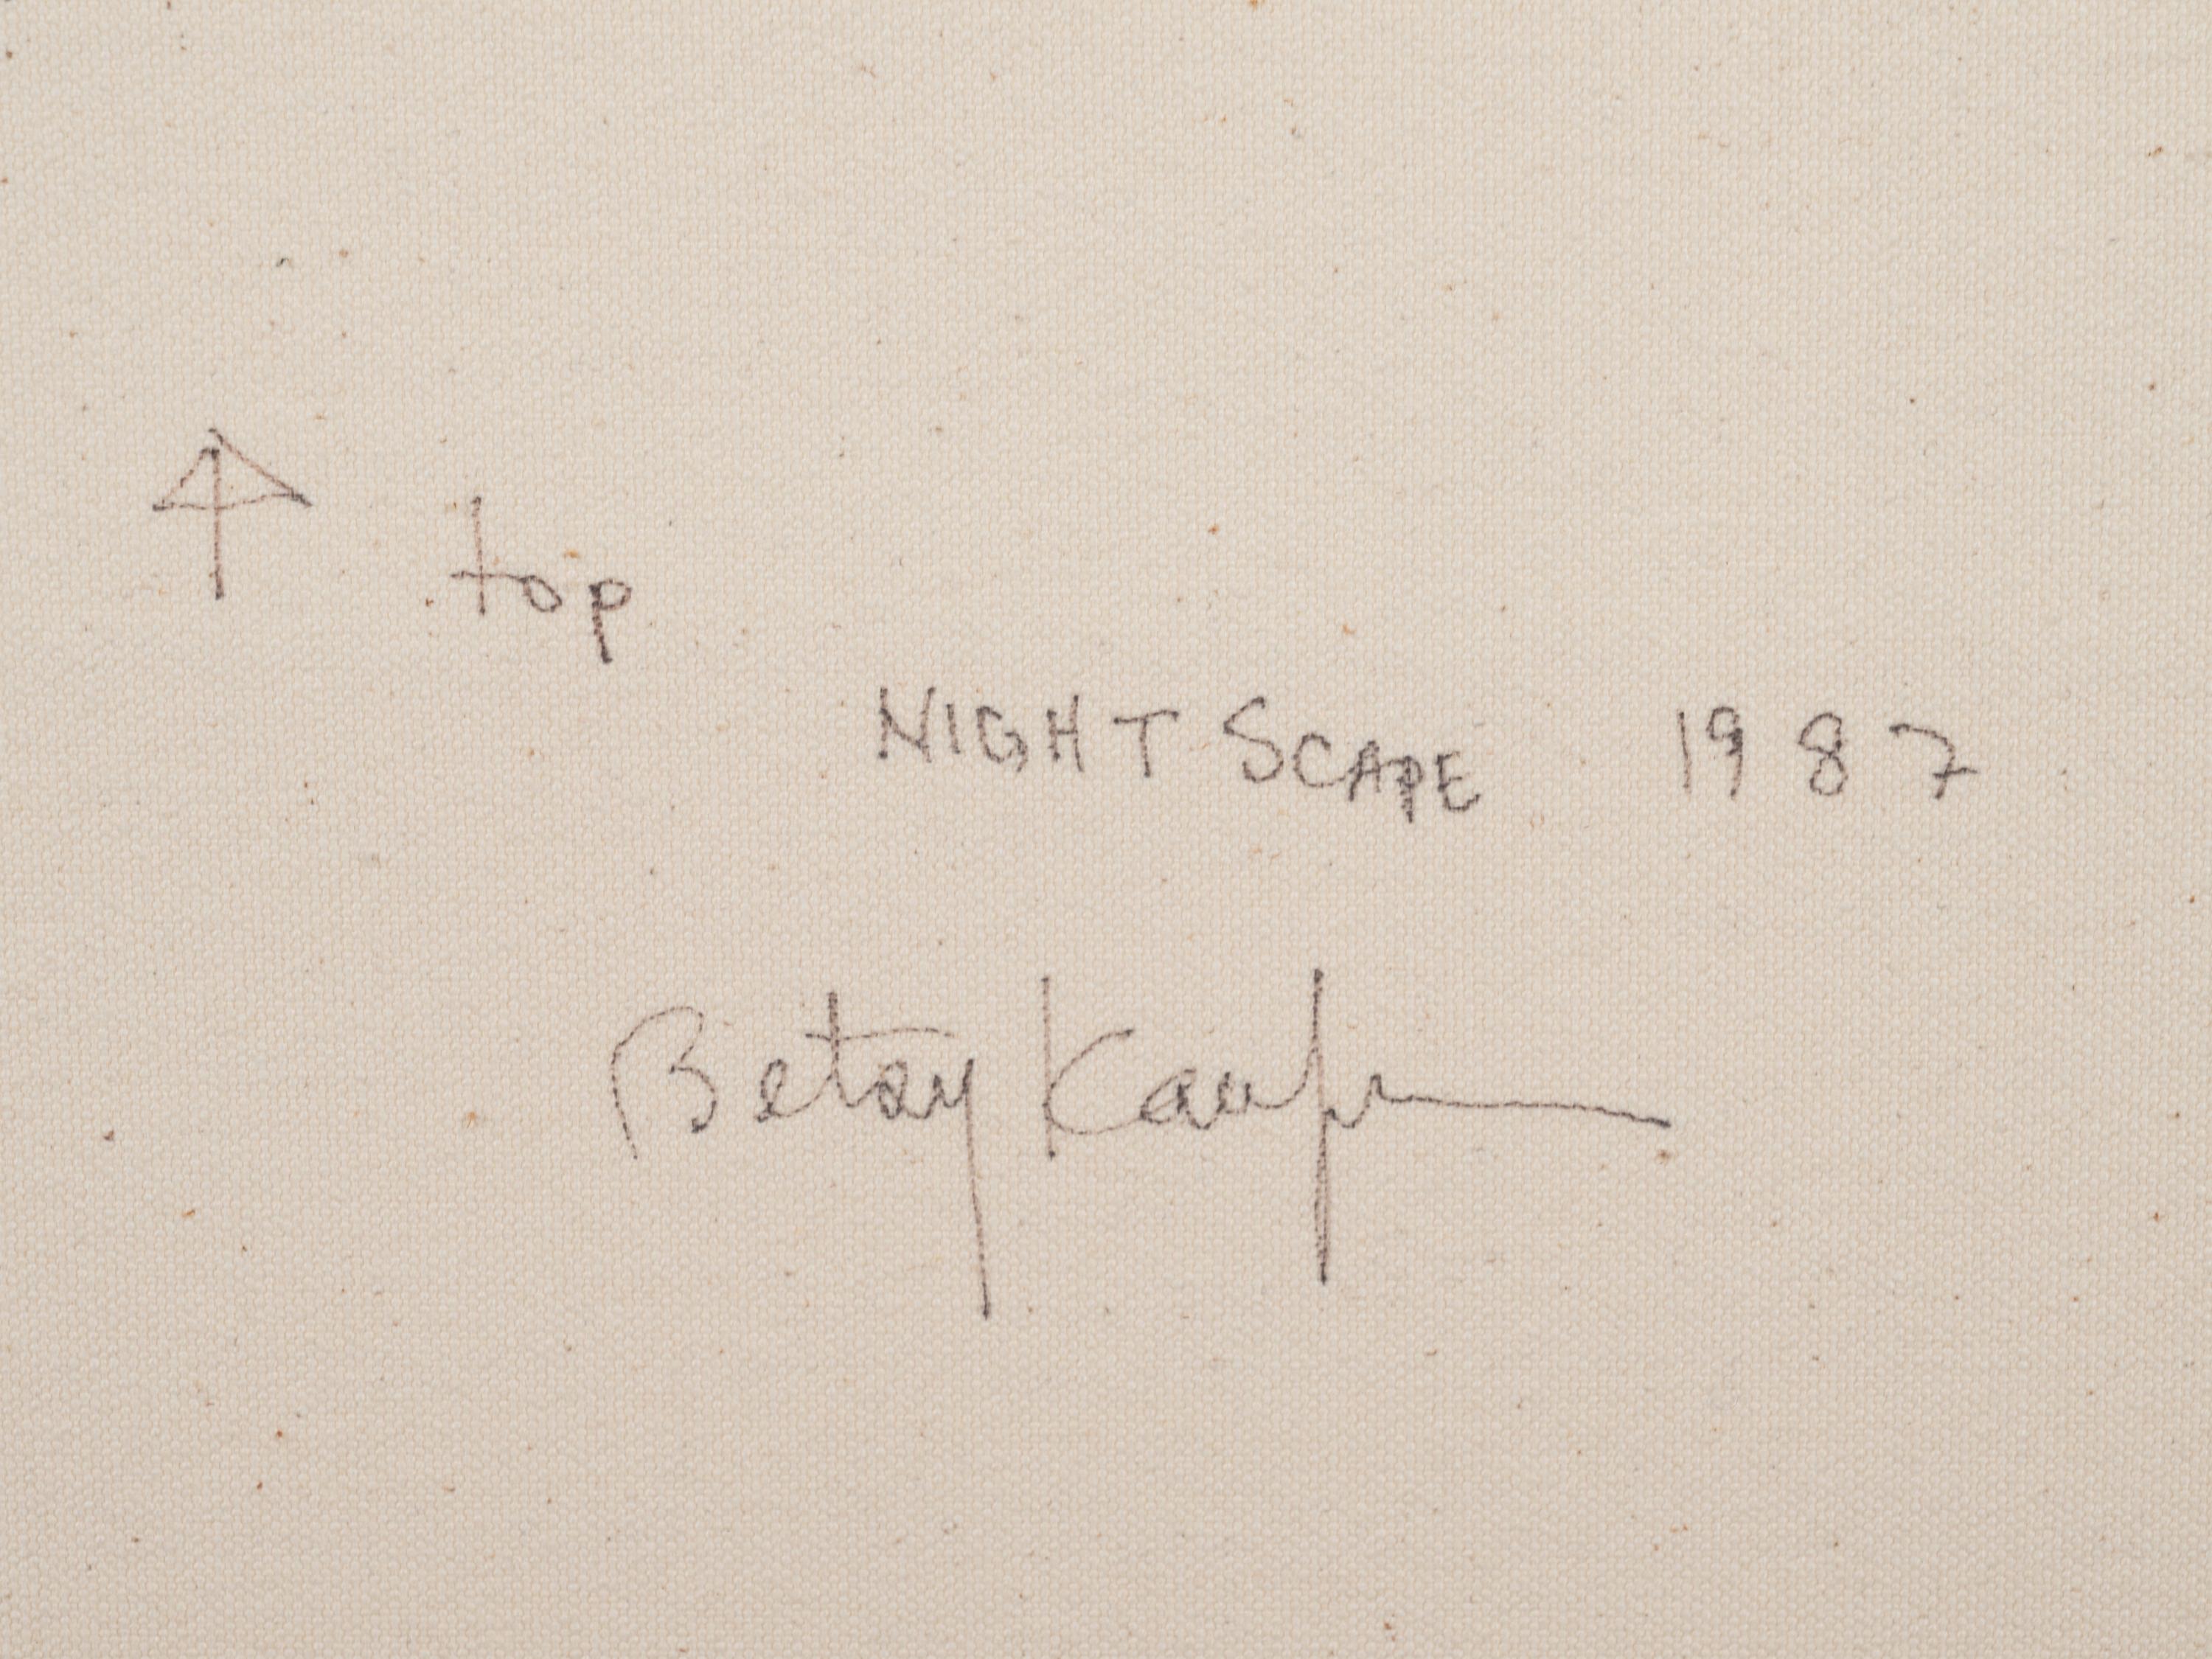 ↑ top
NIGHT SCAPE 1987
Betsy Kaufman